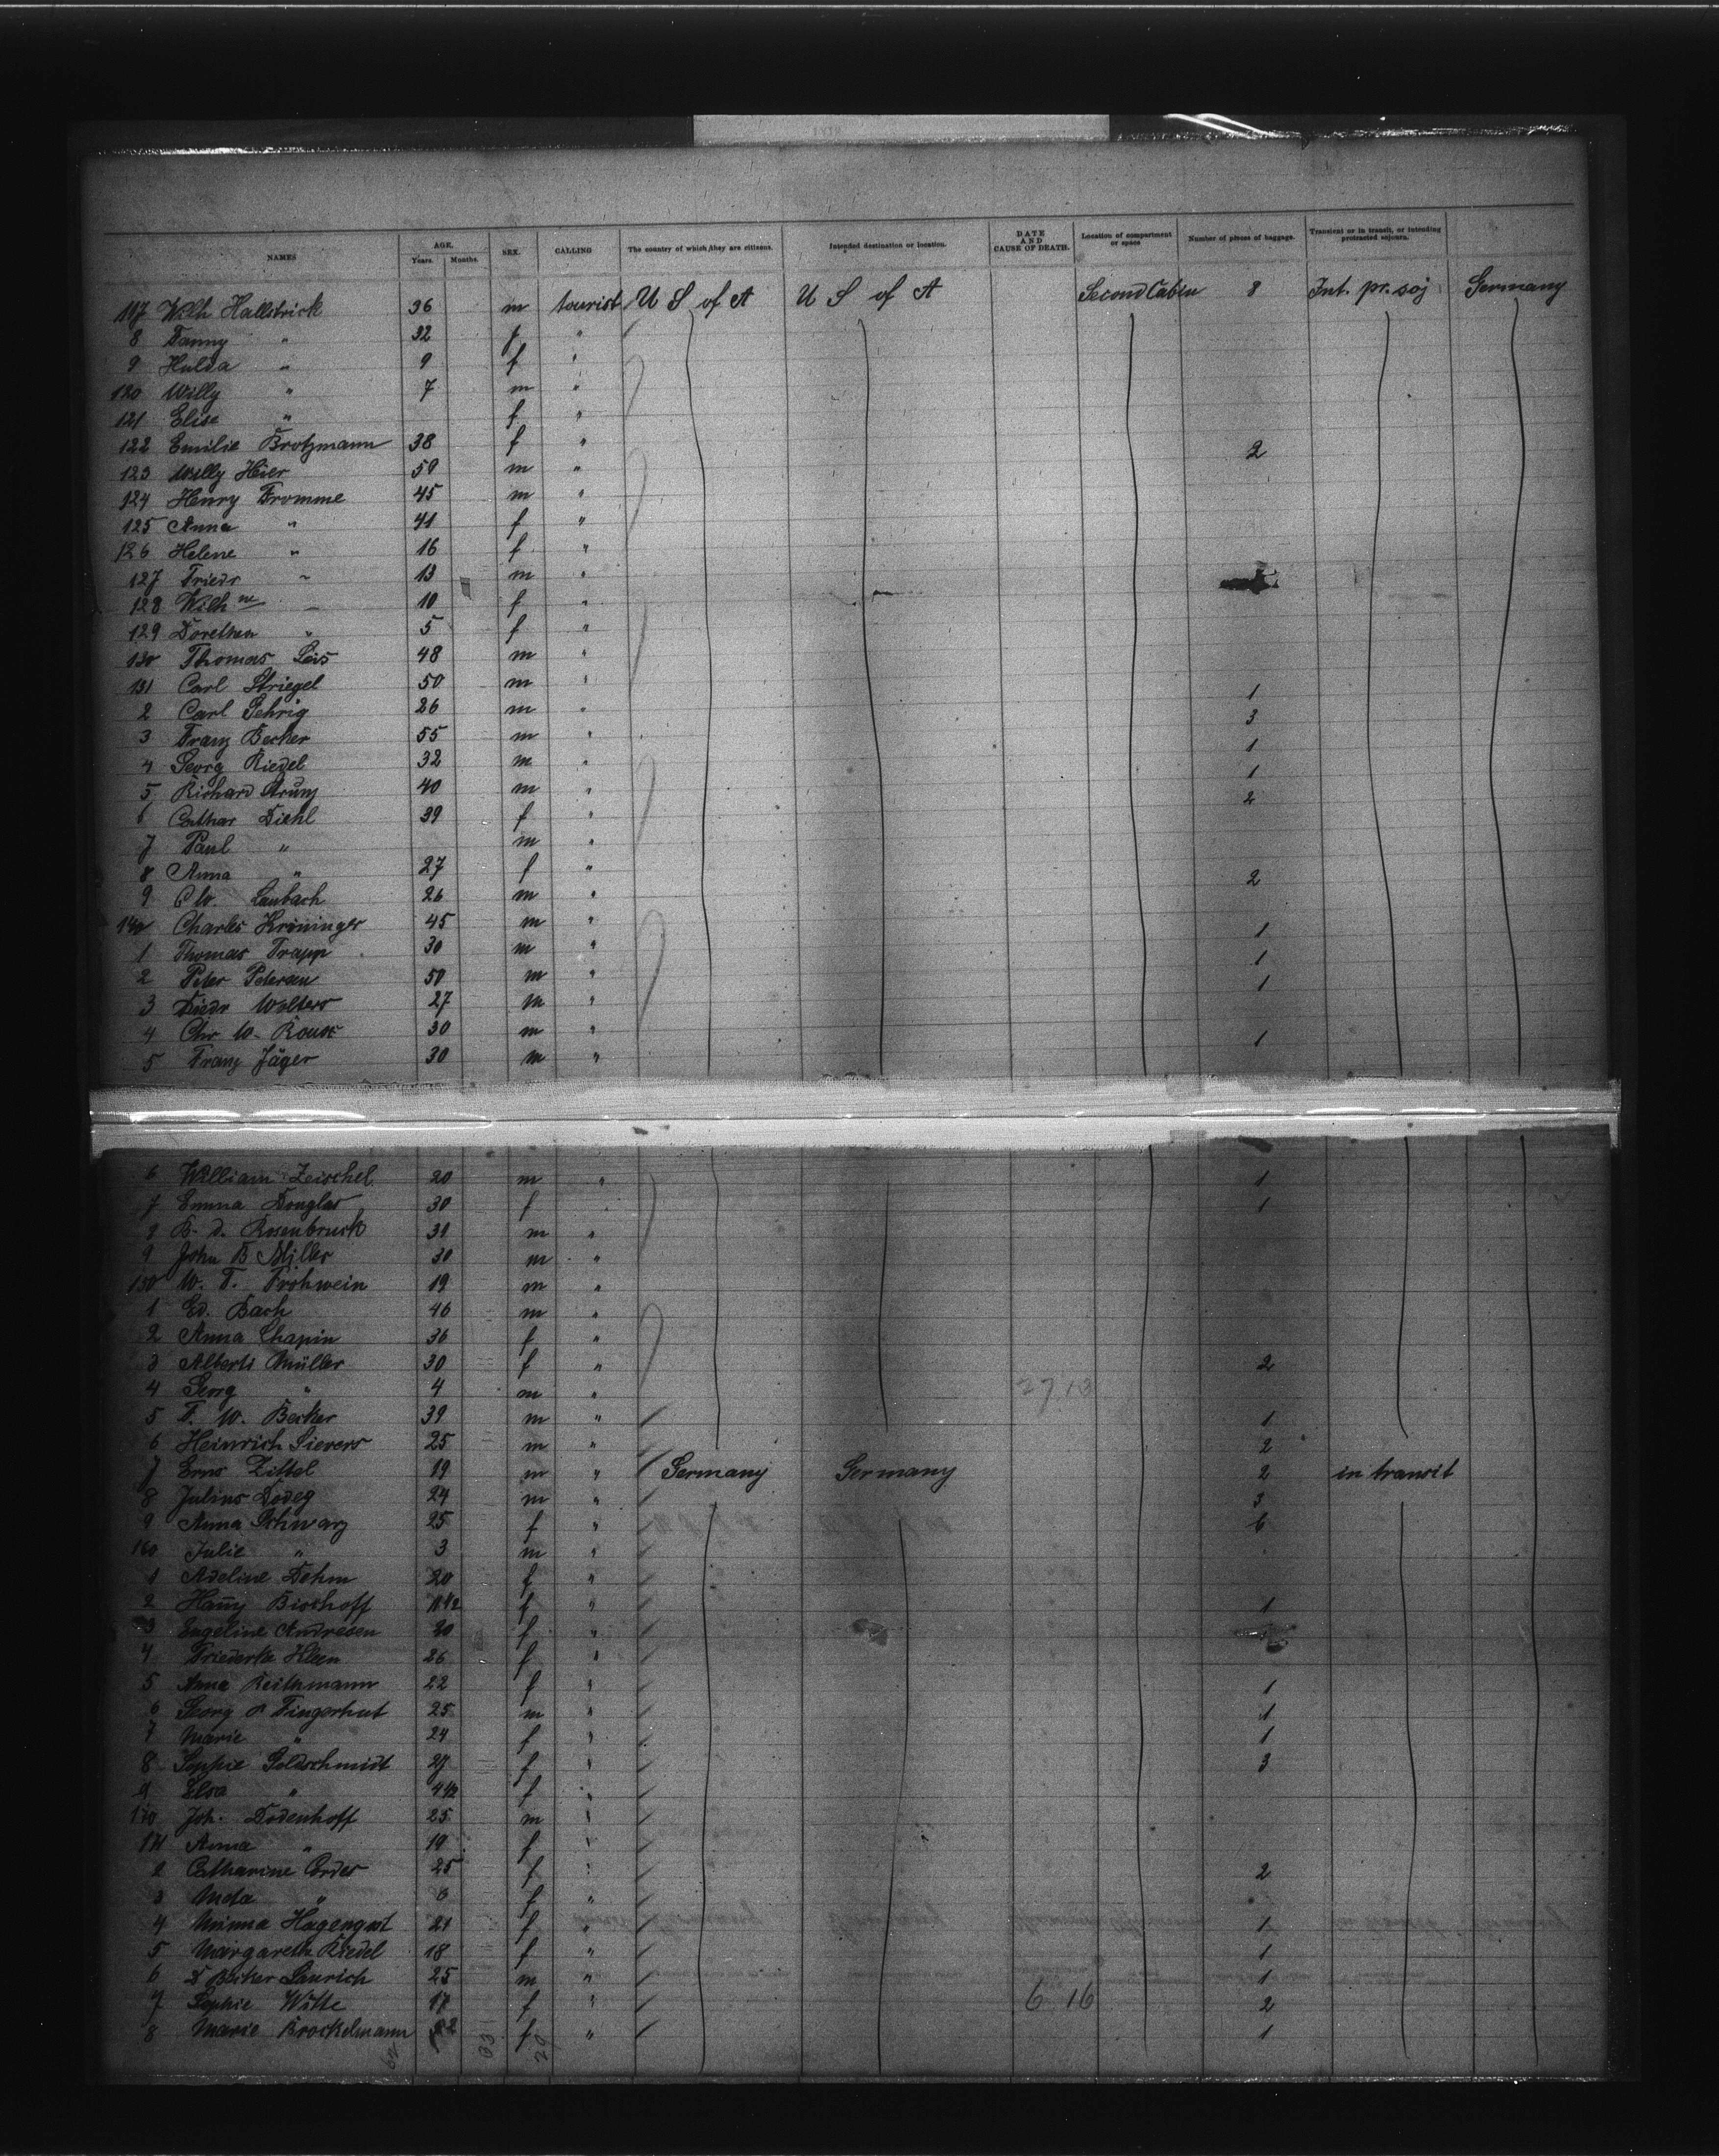 NAMES AGE. Years. Months. SEX. CALLING The country of which they are citizens. Intended destination or location. DATE AND CAUSE OF DEATH. Location of compartment or space Number of pieces of baggage. Transient or in transit, or intending protracted sojourn.
117 Wilh Hallstrick 36 m tourist U S of A U S of A Second Cabin 8 Int. pr. soj Germany
8 Fanny " 32 f "
9 Hulda " 9 f "
120 Willy " 7 m "
121 Elise " f "
122 Emilie Brotzmann 38 f " 2
123 Willy Heier 50 m "
124 Henry Fromme 45 m "
125 Anna " 41 f "
126 Helene " 16 f "
127 Friedr " 13 m "
128 Wilhne " 10 f "
129 Dorethea " 5 f "
130 Thomas Leis 48 m "
131 Carl Striegel 50 m " 1
2 Carl Gehrig 26 m " 3
3 Franz Becker 55 m " 1
4 Georg Riedel 32 m " 1
5 Richard Strunz 40 m " 2
6 Cathar Diehl 39 f "
7 Paul " m "
8 Anna " 27 f " 2
9 Laubach 26 m "
140 Charles Kröninger 45 m " 1
1 Thomas Trapp 30 m " 1
2 Peter Petersen 50 m " 1
3 Diedr Wolters 27 m "
4 Chr W. 30 m " 1
5 Franz Jäger 30 m "
6 William Zeischel 20 m " 1
7 Emma Douglas 30 f " 1
8 Rosenbruck 31 m "
9 John B Miller 30 m "
150 W. F. Frohwein 19 m "
1 Ed. Bach 46 m "
2 Anna Chapin 36 f "
3 Alberti Müller 30 f " 2
4 Georg " 4 m " 2713
5 F. W. Becker 39 m " 1
6 Heinrich Sievers 25 m " 2
7 Erns Zittel 19 m " Germany Germany 2 in transit
8 Julius Dodeg 24 m " 3
9 Anna Schwarz 25 f " 6
160 Julie " 3 m "
1 Adeline Dehm 20 f "
2 Hañy Bischoff 11 1/2 f " 1
3 Engeline Andresen 20 f "
4 Friederke Kleen 26 f "
5 Anna Reithmann 22 f " 1
6 Georg Fingerhut 25 m " 1
7 Marie " 24 f " 1
8 Sophie Goldschmidt 27 f " 3
9 Elsa " 4 1/2 f "
170 Joh. Dodenhoff 25 m "
171 Anna " 19 f "
2 Catharine Cordes 25 f " 2
3 Meta " 6 f "
4 Minna 21 f " 1
5 Margareth Riedel 18 f " 1
6 D Becker Laurich 25 m " 1
7 Sophie Witte 17 f " 6 16 2
8 Marie Brockelmann f " 1